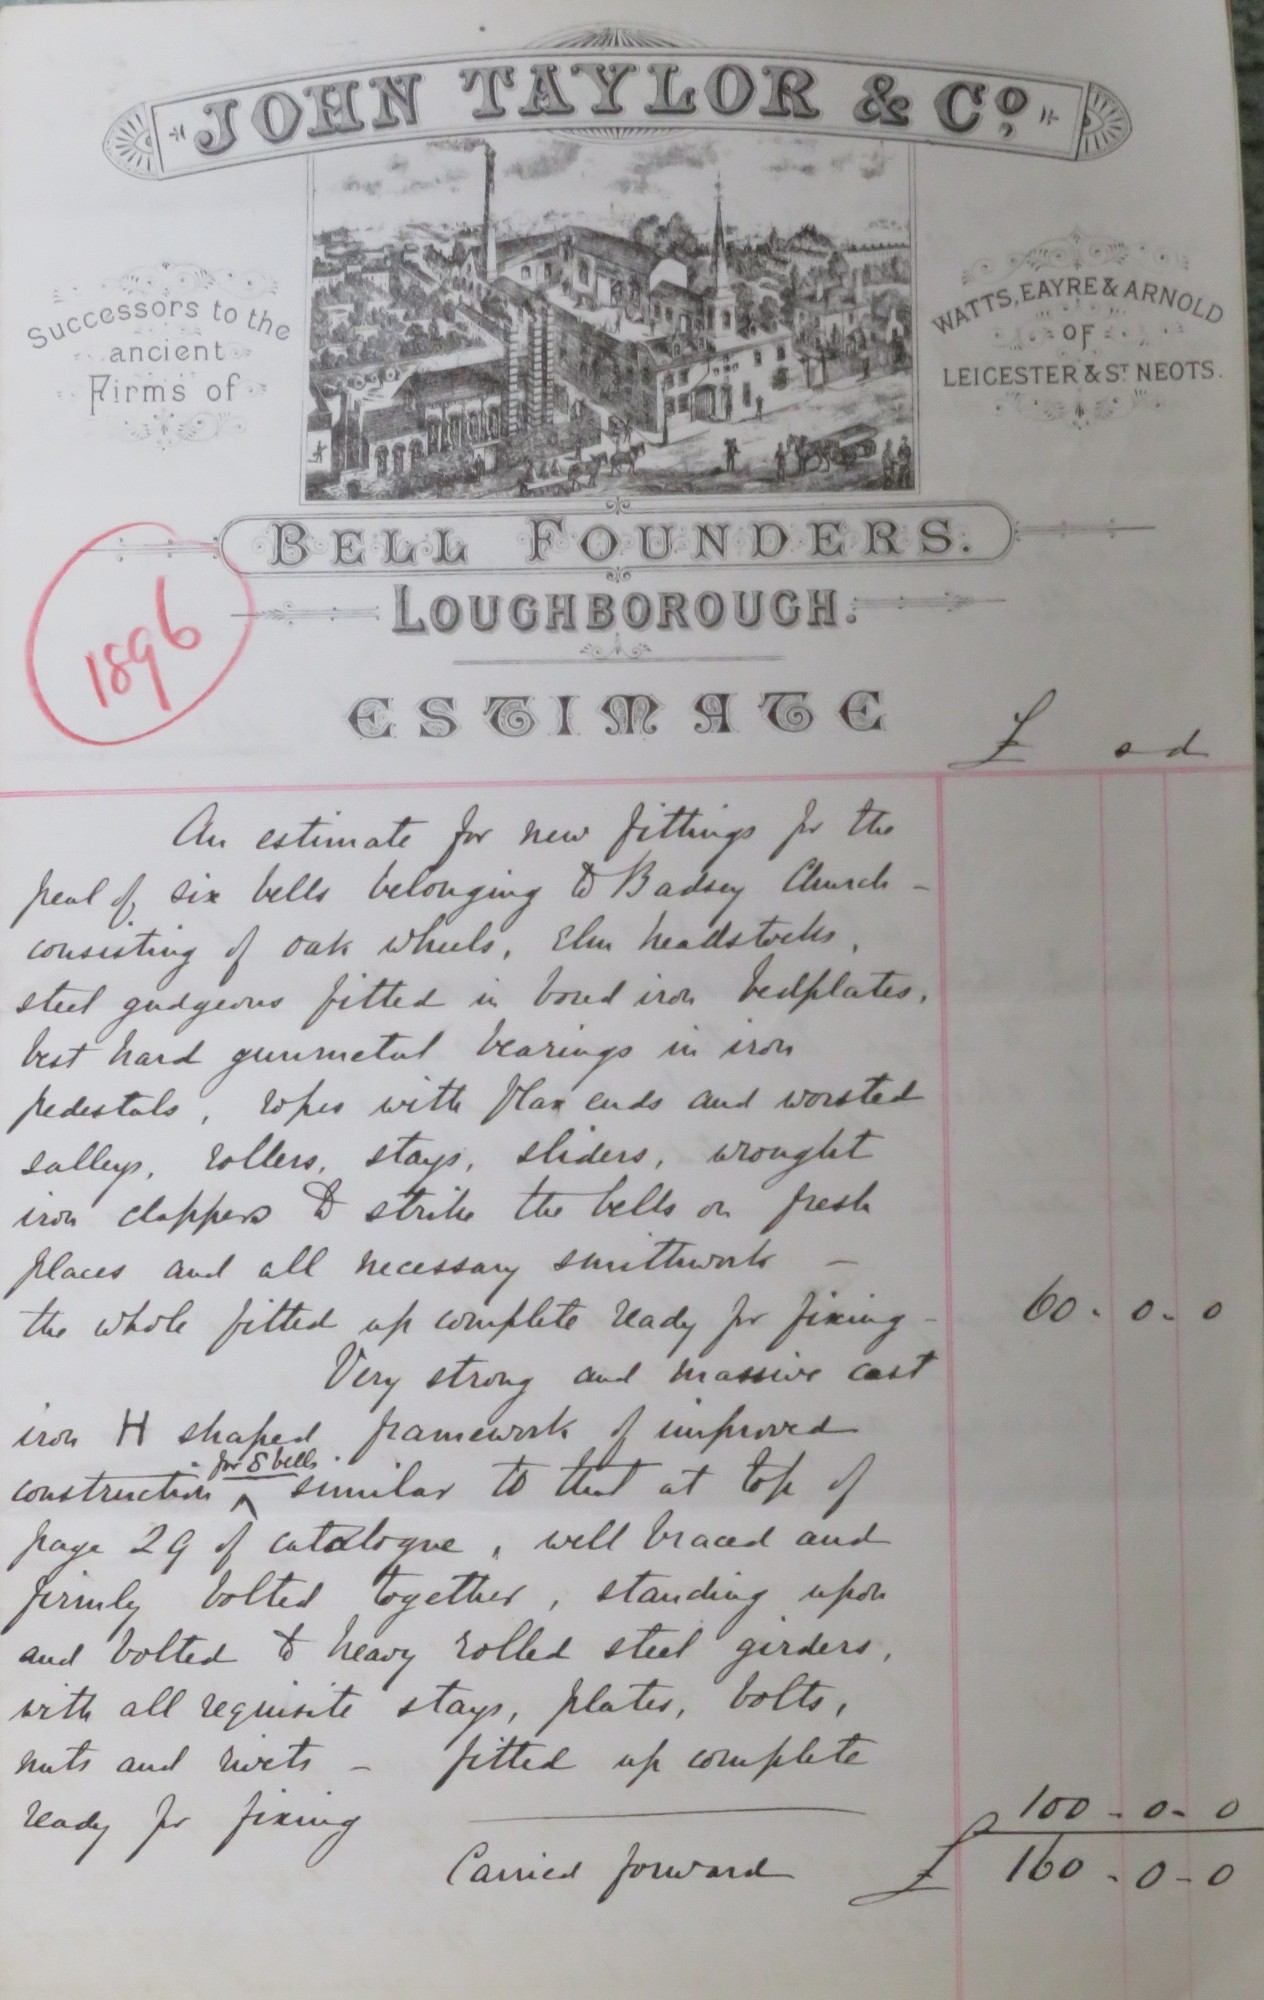 JOHN TAYLOR & Co,
Successors to the
ancient
Firms of
WATTS, EAYRE & ARNOLD
OF
LEICESTER & ST NEOTS.
BELL FOUNDERS.
LOUGHBOROUGH.
1896
ESTIMATE
£ s d
An estimate for new fittings for the
peal of six bells belonging to Badsey Church -
consisting of oak wheels, Elm headstocks,
steel gudgeons fitted in bored iron bedplates,
best hard gunmetal bearings in iron
pedestals, ropes with flax ends and worsted
salleys, rollers, stays, sliders, wrought
iron clappers to strike the bells on fresh
places and all necessary smithwork -
the whole fitted up complete ready for fixing - 60 - 0 - 0
Very strong and massive cast
iron H shaped framework of improved
for 8 bells
construction ^ similar to that at top of
page 29 of catalogue, well braced and
firmly bolted together, standing upon
and bolted to heavy rolled steel girders,
with all requisite stays, plates, bolts,
nuts and rivets - fitted up complete
ready for fixing 100 - 0 - 0
Carried forward £ 160 - 0 - 0